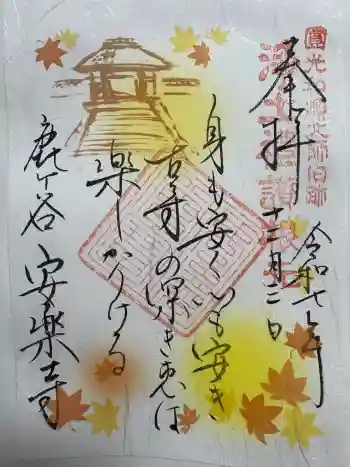 奉拝
令和七年
十二月二日
身も安く心も安き
古寺の深き は
楽しかりける
鹿ヶ谷 安樂寺